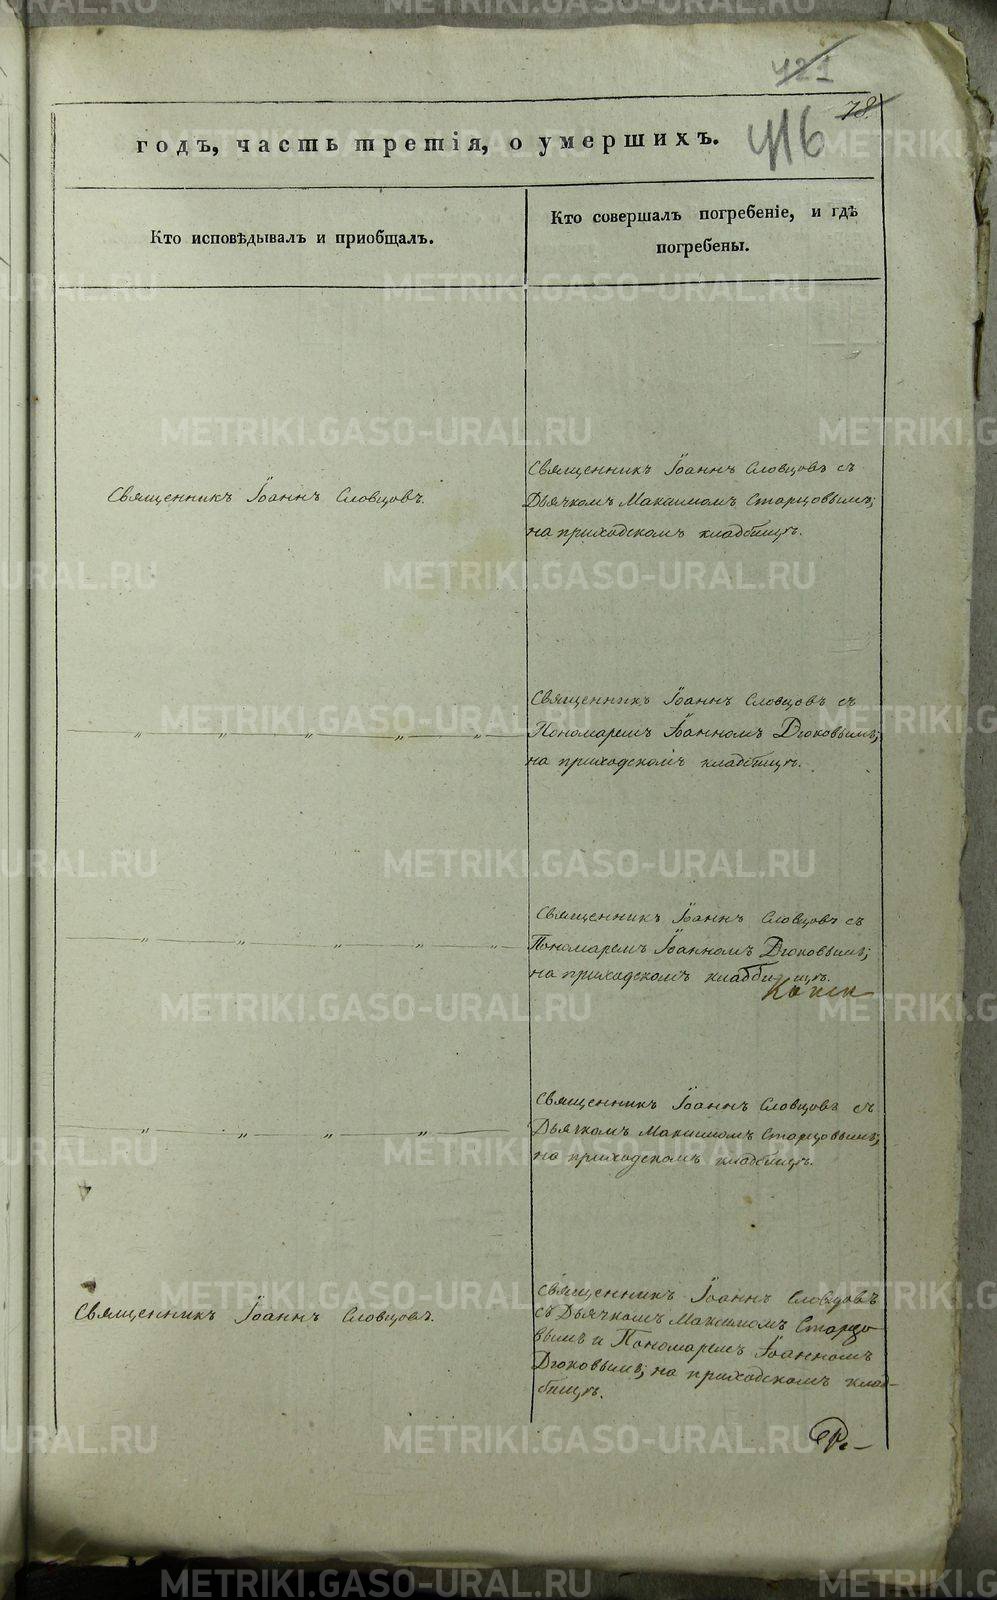 421
78.
416
годъ, часть третія, о умершихъ.
Кто исповѣдывалъ и приобщалъ.
Кто совершалъ погребеніе, и гдѣ
погребены.
Священникъ Іоаннъ Словцовъ.
Священникъ Іоаннъ Словцовъ съ
Дьячкомъ Максимомъ Старцовымъ;
на приходскомъ кладбищѣ.
Священникъ Іоаннъ Словцовъ съ
Пономаремъ Іоанномъ Дюковымъ;
на приходскомъ кладбищѣ.
Священникъ Іоаннъ Словцовъ съ
Пономаремъ Іоанномъ Дюковымъ;
на приходскомъ кладбищѣ.
Священникъ Іоаннъ Словцовъ съ
Дьячкомъ Максимомъ Старцовымъ;
на приходскомъ кладбищѣ.
Священникъ Іоаннъ Словцовъ.
Священникъ Іоаннъ Словцовъ
съ Дьячкомъ Максимомъ Старцо
вымъ и Пономаремъ Іоанномъ
Дюковымъ; на приходскомъ клад-
бищѣ.
METRIKI.GASO-URAL.RU